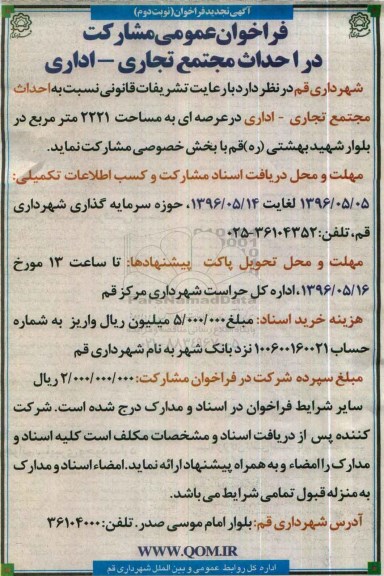 آگهی تجدید فراخوان (نوبت دوم)
فراخوان عمومی مشارکت
در احداث مجتمع تجاری - اداری
شهرداری قم در نظر دارد با رعایت تشریفات قانونی نسبت به احداث
مجتمع تجاری - اداری در عرصه ای به مساحت ۲۲۲۱ متر مربع در
بلوار شهید بهشتی (ره) قم با بخش خصوصی مشارکت نماید.
مهلت و محل دریافت اسناد مشارکت و کسب اطلاعات تکمیلی:
۱۳۹۶/۰۵/۰۵ لغایت ۱۳۹۶/۰۵/۱۴، حوزه سرمایه گذاری شهرداری
قم، تلفن: ۳۶۱۰۴۳۵۲-۰۲۵
مهلت و محل تحویل پاکت پیشنهادها: تا ساعت ۱۳ مورخ
۱۳۹۶/۰۵/۱۶، اداره کل حراست شهرداری مرکز قم
هزینه خرید اسناد: مبلغ ۵/۰۰۰/۰۰۰ میلیون ریال واریز به شماره
حساب ۱۰۰۶۰۰۱۶۰۰۲۱ نزد بانک شهر به نام شهرداری قم
مبلغ سپرده شرکت در فراخوان مشارکت: ۲/۰۰۰/۰۰۰/۰۰۰ ریال
سایر شرایط فراخوان در اسناد و مدارک درج شده است. شرکت
کننده پس از دریافت اسناد و مشخصات مکلف است کلیه اسناد و
مدارک را امضاء و به همراه پیشنهاد ارائه نماید. امضاء اسناد و مدارک
به منزله قبول تمامی شرایط می باشد.
آدرس شهرداری قم: بلوار امام موسی صدر. تلفن: ۳۶۱۰۴۰۰۰
WWW.QOM.IR
اداره کل روابط عمومی و بین الملل شهرداری قم